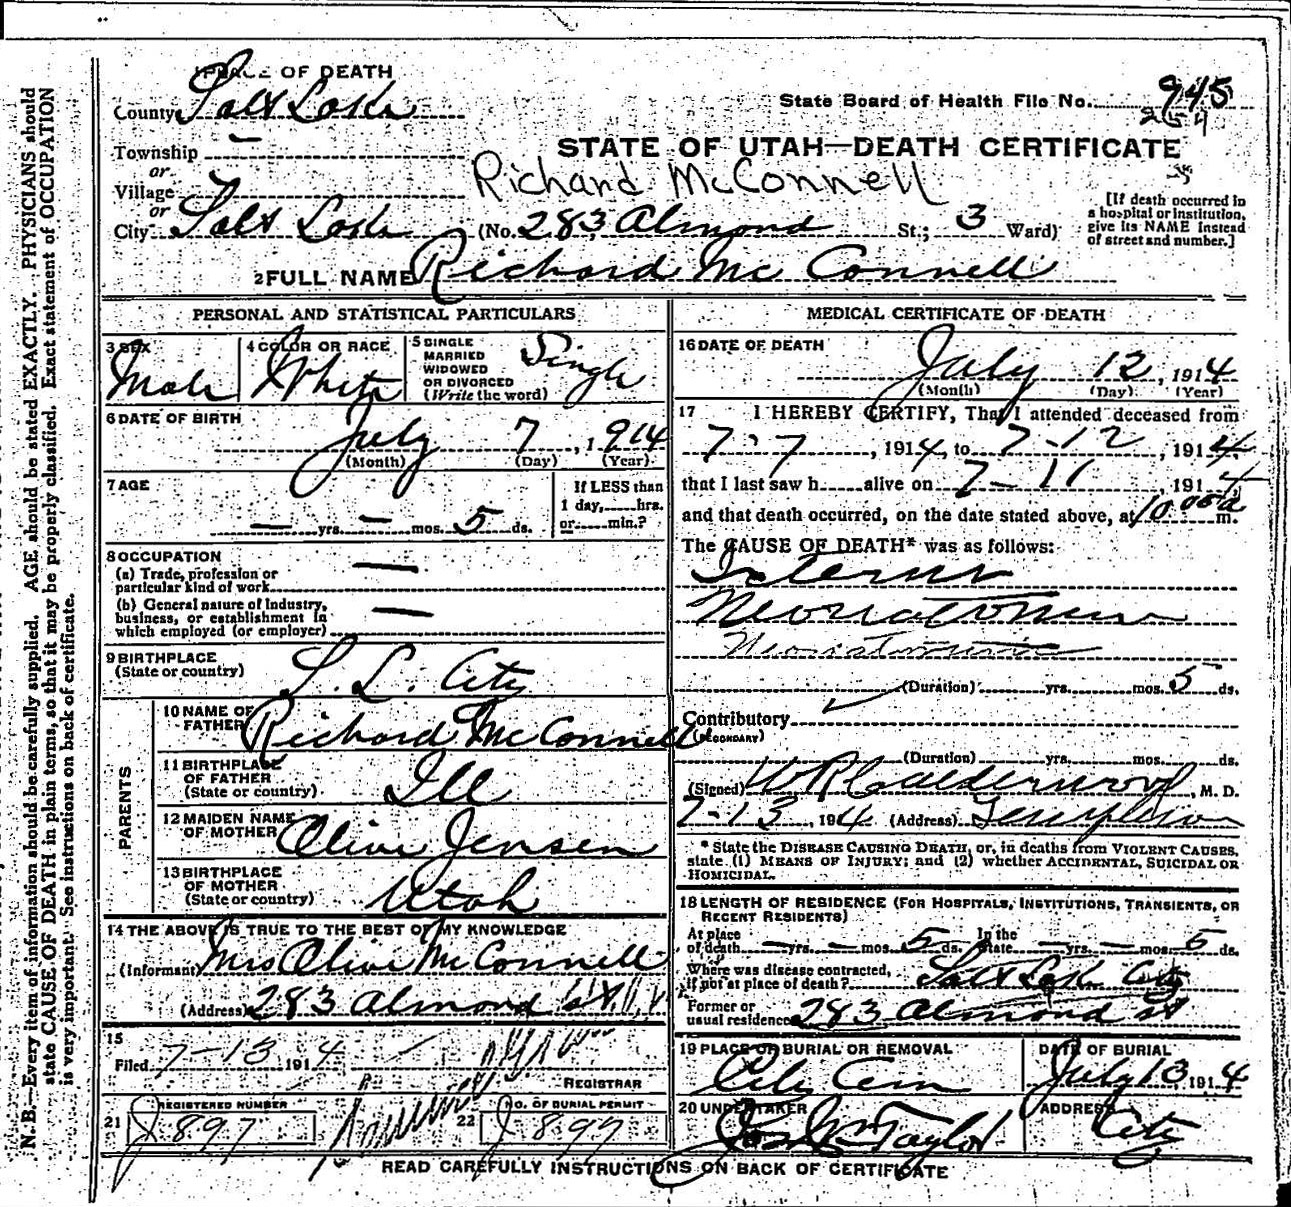 PLACE OF DEATH
County Salt Lake
State Board of Health File No. 945
254
Township —
STATE OF UTAH—DEATH CERTIFICATE
or
Village
Richard McConnell
or
City Salt Lake (No. 283 Almond St.; 3 Ward)
[If death occurred in
a hospital or institution,
give its NAME instead
of street and number.]
2 FULL NAME Richard McConnell
PERSONAL AND STATISTICAL PARTICULARS
3 SEX
Male
4 COLOR OR RACE
White
5 SINGLE
MARRIED
WIDOWED
OR DIVORCED
(Write the word)
Single
6 DATE OF BIRTH
July 7, 1914
(Month) (Day) (Year)
7 AGE
— yrs. — mos. 5 ds.
If LESS than
1 day,.....hrs.
or.....min.?
8 OCCUPATION
(a) Trade, profession or
particular kind of work —
(b) General nature of Industry,
business, or establishment in
which employed (or employer) —
9 BIRTHPLACE
(State or country) S. L. City
PARENTS
10 NAME OF
FATHER Richard McConnell
11 BIRTHPLACE
OF FATHER
(State or country) Ill
12 MAIDEN NAME
OF MOTHER Olive Jensen
13 BIRTHPLACE
OF MOTHER
(State or country) Utah
14 THE ABOVE IS TRUE TO THE BEST OF MY KNOWLEDGE
(Informant) Mrs Olive McConnell
(Address) 283 Almond St
15
Filed 7-13 1914
REGISTRAR
21 REGISTERED NUMBER
J 897
22 NO. OF BURIAL PERMIT
J 897
MEDICAL CERTIFICATE OF DEATH
16 DATE OF DEATH
July 12, 1914
(Month) (Day) (Year)
17 I HEREBY CERTIFY, That I attended deceased from
7-7, 1914, to 7-12, 1914
that I last saw h.....alive on 7-11 1914
and that death occurred, on the date stated above, at 10 00 a m.
The CAUSE OF DEATH* was as follows:
(Duration) yrs. mos. 5 ds.
Contributory
(SECONDARY)
(Duration) yrs. mos. ds.
(Signed) W R Calderwood, M. D.
7-13, 1914 (Address) Templeton
* State the DISEASE CAUSING DEATH, or, in deaths from VIOLENT CAUSES,
state (1) MEANS OF INJURY; and (2) whether ACCIDENTAL, SUICIDAL OR
HOMICIDAL.
18 LENGTH OF RESIDENCE (FOR HOSPITALS, INSTITUTIONS, TRANSIENTS, OR
RECENT RESIDENTS)
At place
of death — yrs. — mos. 5 ds. In the
State — yrs. — mos. 5 ds.
Where was disease contracted,
if not at place of death? Salt Lake City
Former or
usual residence 283 Almond St
19 PLACE OF BURIAL OR REMOVAL
City Cem
DATE OF BURIAL
July 13 1914
20 UNDERTAKER
Jos Wm Taylor
ADDRESS
City
READ CAREFULLY INSTRUCTIONS ON BACK OF CERTIFICATE
N. B.—Every item of information should be carefully supplied. AGE should be stated EXACTLY. PHYSICIANS should
state CAUSE OF DEATH in plain terms, so that it may be properly classified. Exact statement of OCCUPATION
is very important. See instructions on back of certificate.